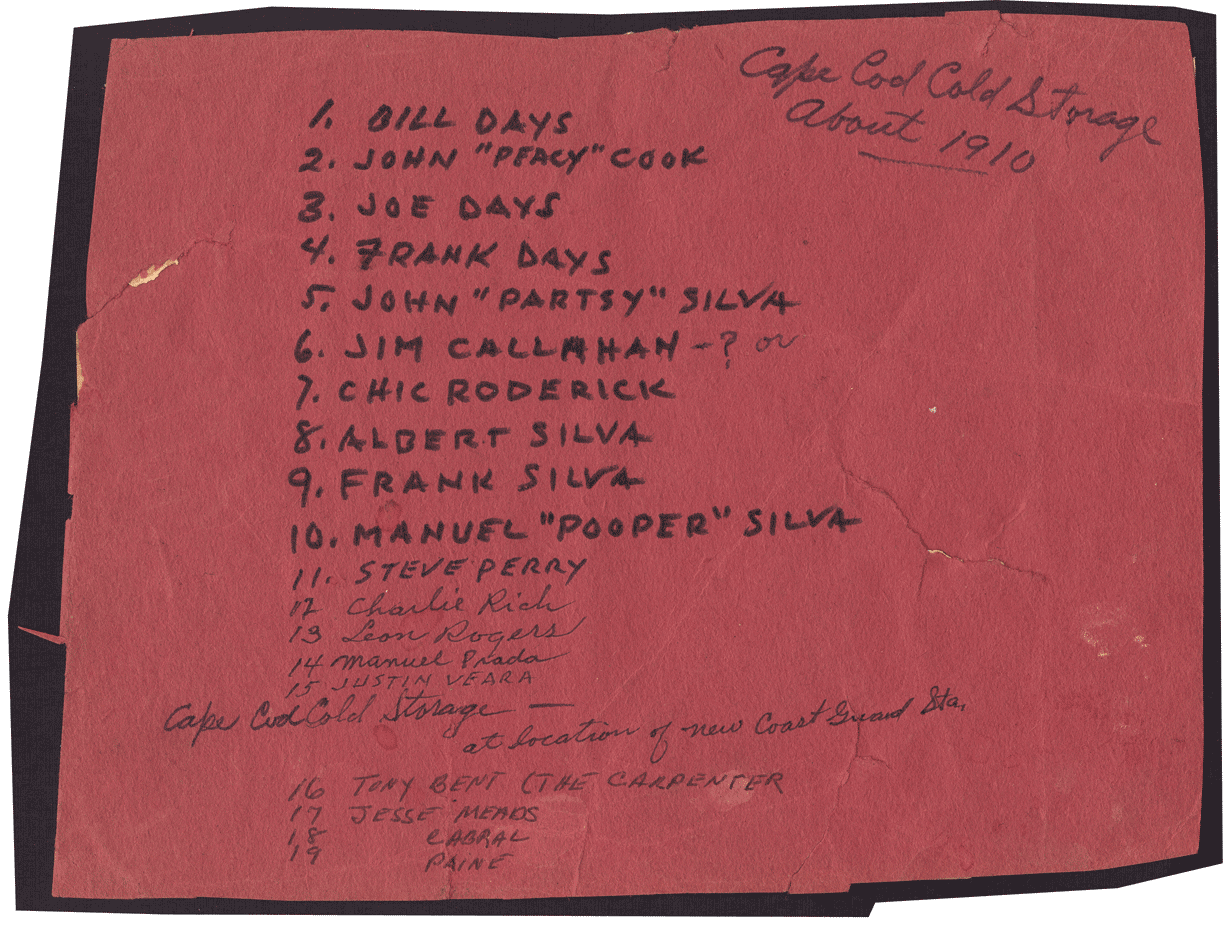 Cape Cod Cold Storage
About 1910
1. BILL DAYS
2. JOHN "PEACY" COOK
3. JOE DAYS
4. FRANK DAYS
5. JOHN "PARTSY" SILVA
6. JIM CALLAHAN - ? or
7. CHIC RODERICK
8. ALBERT SILVA
9. FRANK SILVA
10. MANUEL "POOPER" SILVA
11. STEVE PERRY
12 Charlie Rich
13 Leon Rogers
14 Manuel Prada
15 JUSTIN VEARA
Cape Cod Cold Storage —
at location of new Coast Guard Sta.
16 TONY BENT (THE CARPENTER
17 JESSE MEADS
18 CABRAL
19 PAINE